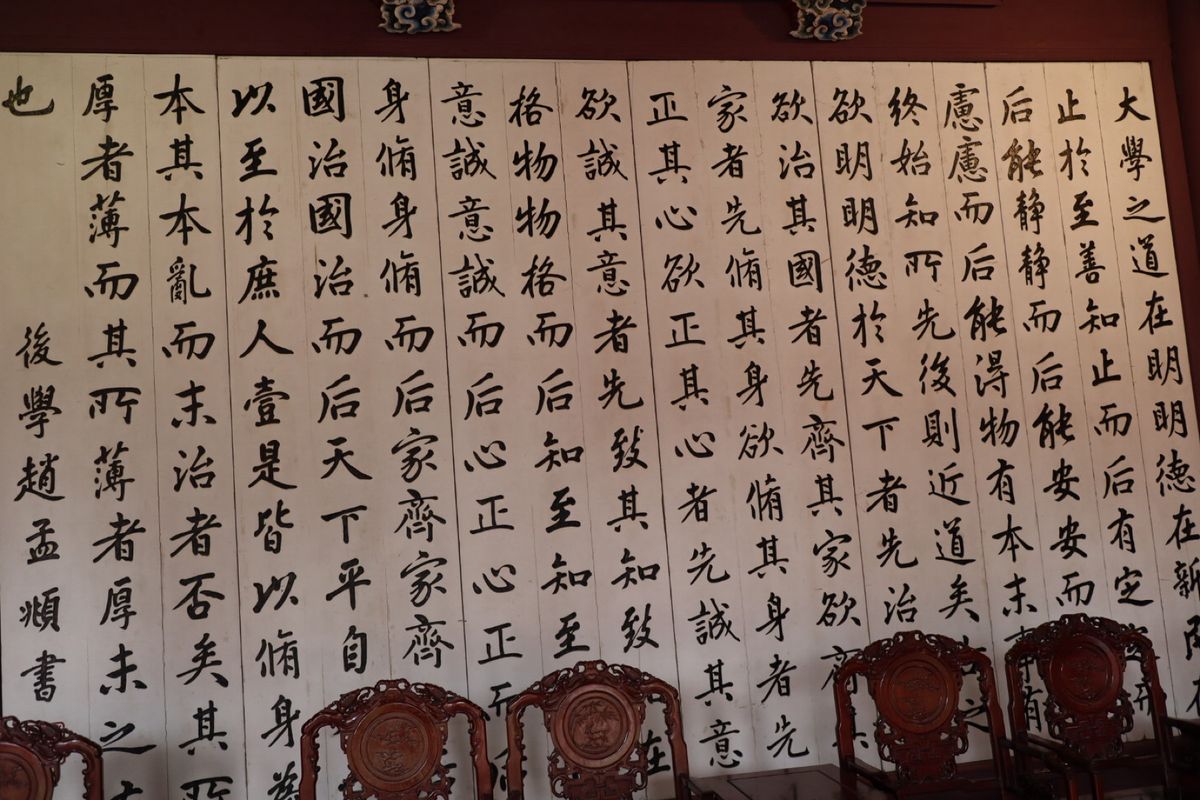 大學之道在明明德在新
止於至善知止而后有定
后能静静而后能安安而
慮慮而后能得物有本末事有
終始知所先後則近道矣古之
欲明明德於天下者先治
欲治其國者先齊其家欲齊其
家者先脩其身欲脩其身者先
正其心欲正其心者先誠其意
欲誠其意者先致其知致在
格物物格而后知至知至
意誠意誠而后心正心正而
身脩身脩而后家齊家齊
國治國治而后天下平自
以至於庶人壹是皆以脩身為
本其本亂而末治者否矣其所
厚者薄而其所薄者厚未之有
也 後學趙孟頫書